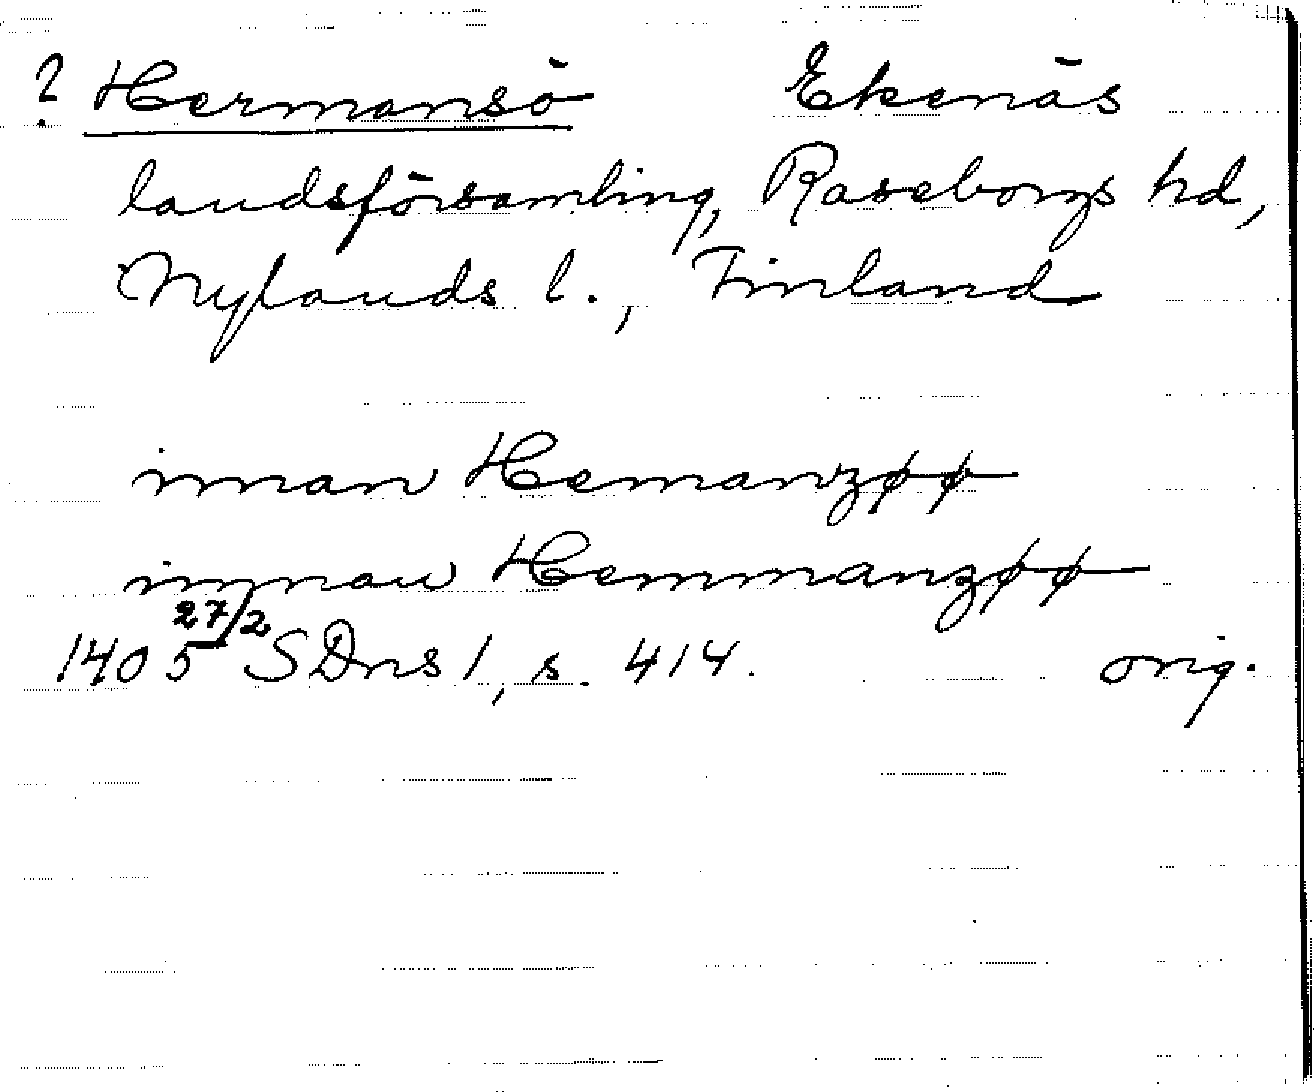 ? Hermansö Ekenäs
landsförsamling, Raseborgs hd,
Nylands l., Finland
innan Hemanzøø
innan Hemmanzøø
1405 27/2 SDns 1, s. 414. orig.